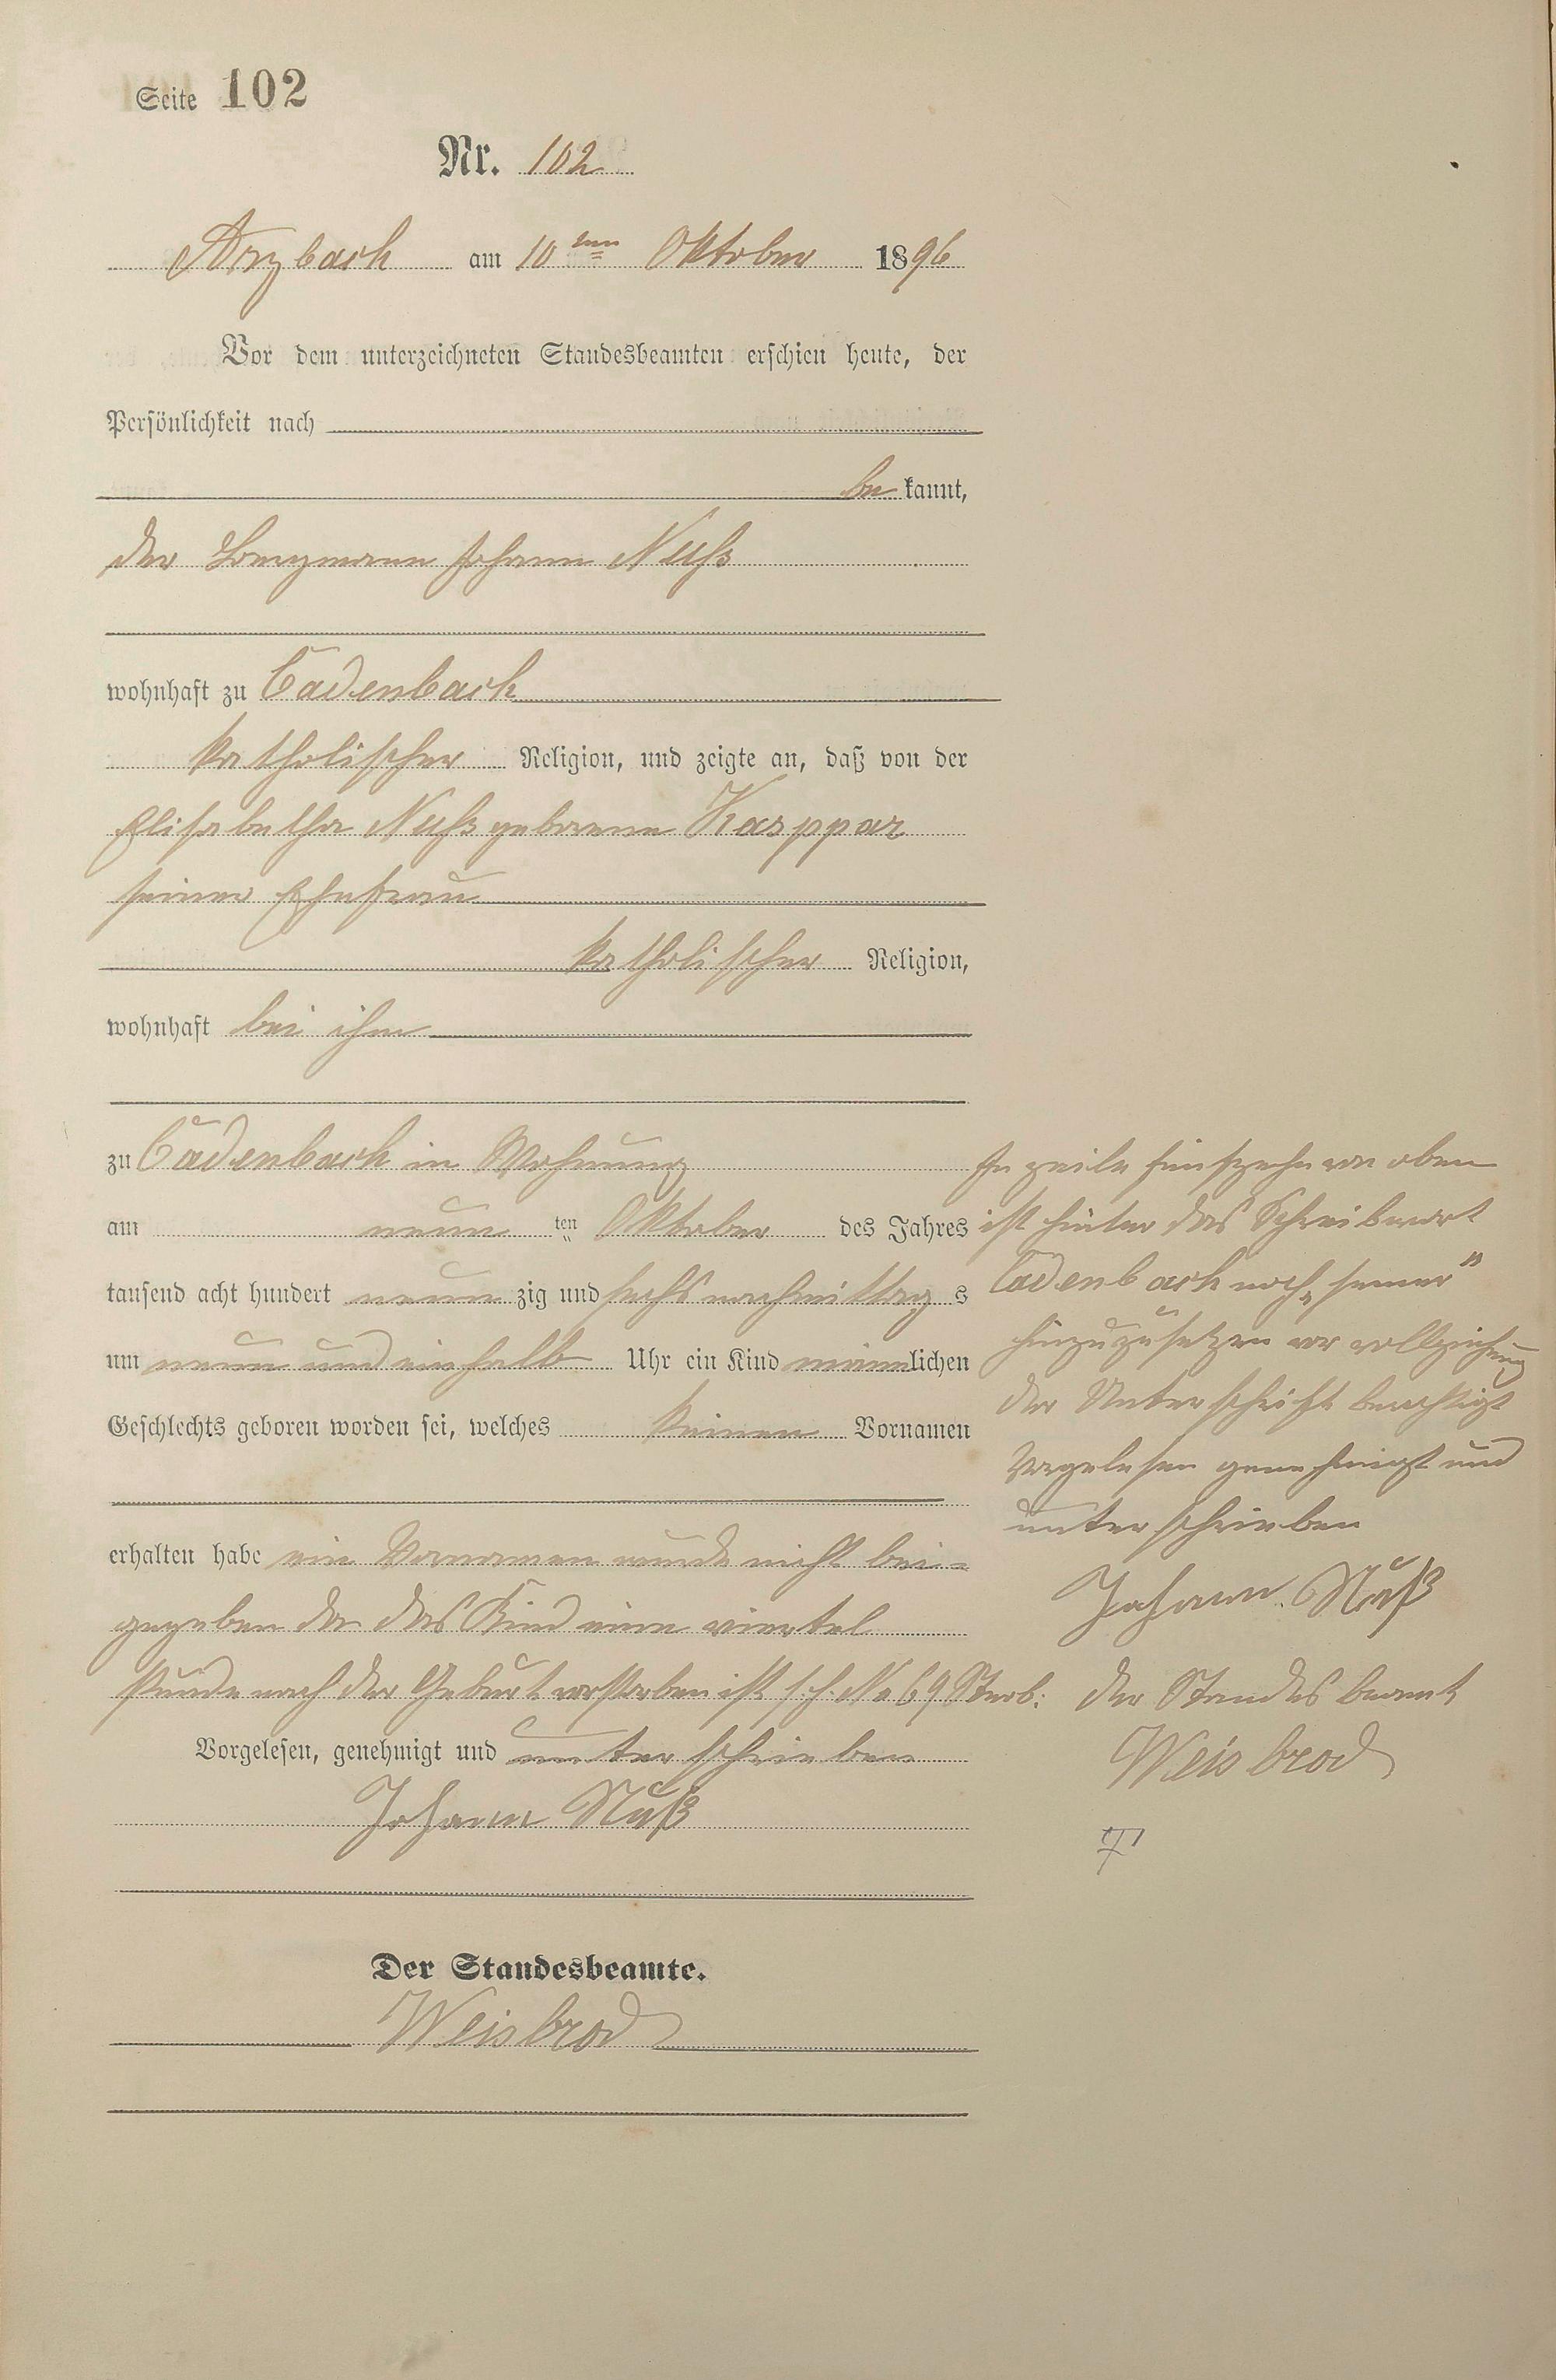 Seite 102
Nr. 102
Arzbach am 10ten Oktober 1896
Vor dem unterzeichneten Standesbeamten erschien heute, der
Persönlichkeit nach
be kannt,
der Bergmann Johann Nuß
wohnhaft zu Cadenbach
katholischer Religion, und zeigte an, daß von der
Elisabetha Nuß geborene Kasppar
seiner Ehefrau
katholischer Religion,
wohnhaft bei ihm
zu Cadenbach in Wohnung
am neun ten Oktober des Jahres
tausend acht hundert neun zig und sechs nachmittag s
um neun und ein halb Uhr ein Kind männlichen
Geschlechts geboren worden sei, welches keinen Vornamen
erhalten habe ein Vornamen wurde nicht bei-
gegeben da das Kind eine viertel
stunde nach der Geburt verstorben ist s. h. No 69 Sterb:
Vorgelesen, genehmigt und unterschrieben
Johann Nuß
Der Standesbeamte.
Weisbrod
In zeile fünfzehn von oben
ist hinter das Schreibwort
Cadenbach noch „seiner"
hinzuzusetzen vor vollziehung
der Unterschrift berichtigt
Vorgelesen genehmigt und
unterschrieben
Johann Nuß
Der Standesbeamt
Weisbrod